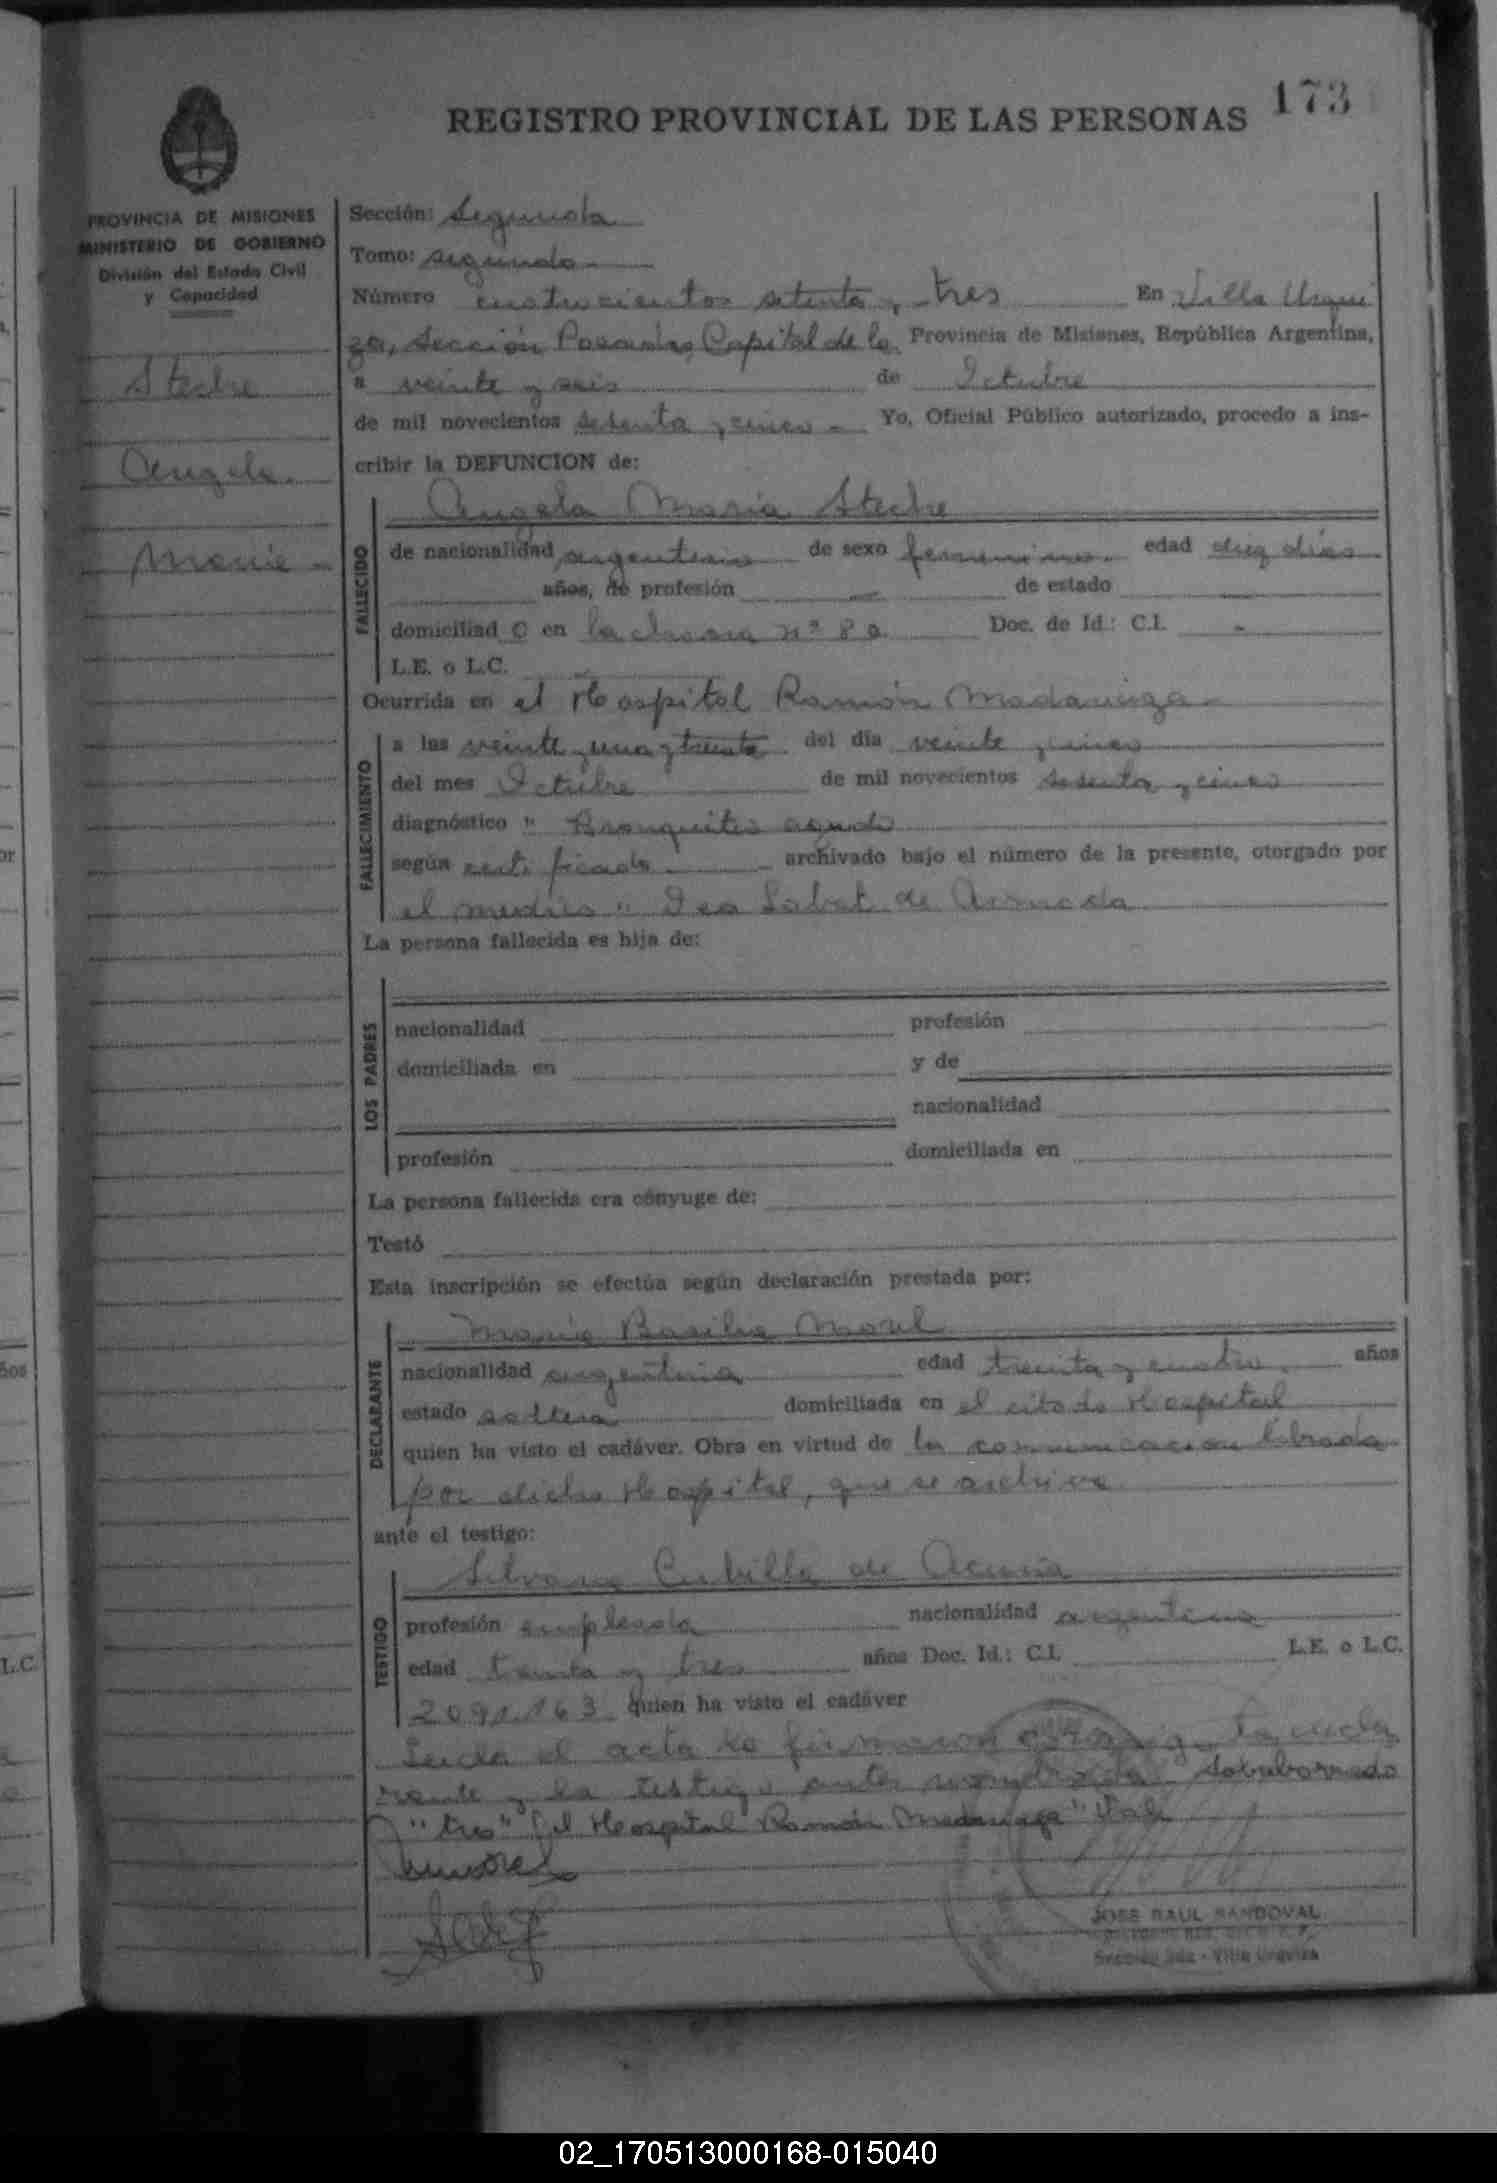 173
REGISTRO PROVINCIAL DE LAS PERSONAS
PROVINCIA DE MISIONES
MINISTERIO DE GOBIERNO
División del Estado Civil
y Capacidad
Steche
Angela
Maria
Sección: Segunda
Tomo: segundo
Número cuatrocientos setenta y tres En Villa Urqui
za, Sección Posadas, Capital de la Provincia de Misiones, República Argentina,
a veinte y seis de Octubre
de mil novecientos sesenta y cinco Yo, Oficial Público autorizado, procedo a ins-
cribir la DEFUNCION de:
FALLECIDO
Angela Maria Steche
de nacionalidad argentina de sexo femenino edad diez días
años, de profesión — de estado —
domiciliado en la chacra nº 80 Doc. de Id.: C.I. -
L.E. o L.C.
Ocurrida en el Hospital Ramón Madariaga
FALLECIMIENTO
a las veinte y una y treinta del día veinte y cinco
del mes Octubre de mil novecientos sesenta y cinco
diagnóstico " Bronquitis aguda
según certificado archivado bajo el número de la presente, otorgado por
el medico " Sabat de
La persona fallecida es hija de:
LOS PADRES
nacionalidad profesión
domiciliada en y de
nacionalidad
profesión domiciliada en
La persona fallecida era cónyuge de:
Testó
Esta inscripción se efectúa según declaración prestada por:
DECLARANTE
Maria Basilia Morel
nacionalidad argentina edad treinta y cuatro años
estado soltera domiciliada en el citado Hospital
quien ha visto el cadáver. Obra en virtud de la comunicacion librada
por dicho Hospital, que se archiva
ante el testigo:
TESTIGO
Silvana Cubilla de Acuña
profesión empleada nacionalidad argentina
edad treinta y tres años Doc. Id.: C.I. L.E. o L.C.
2091.163 quien ha visto el cadáver
Leida el acta la firmaron la decla
rante y la testigo antes nombrada Sobreborrado
"tres" "el Hospital Ramón Madariaga" Vale
JOSE RAUL SANDOVAL
Sección 2da - Villa Urquiza
02_170513000168-015040